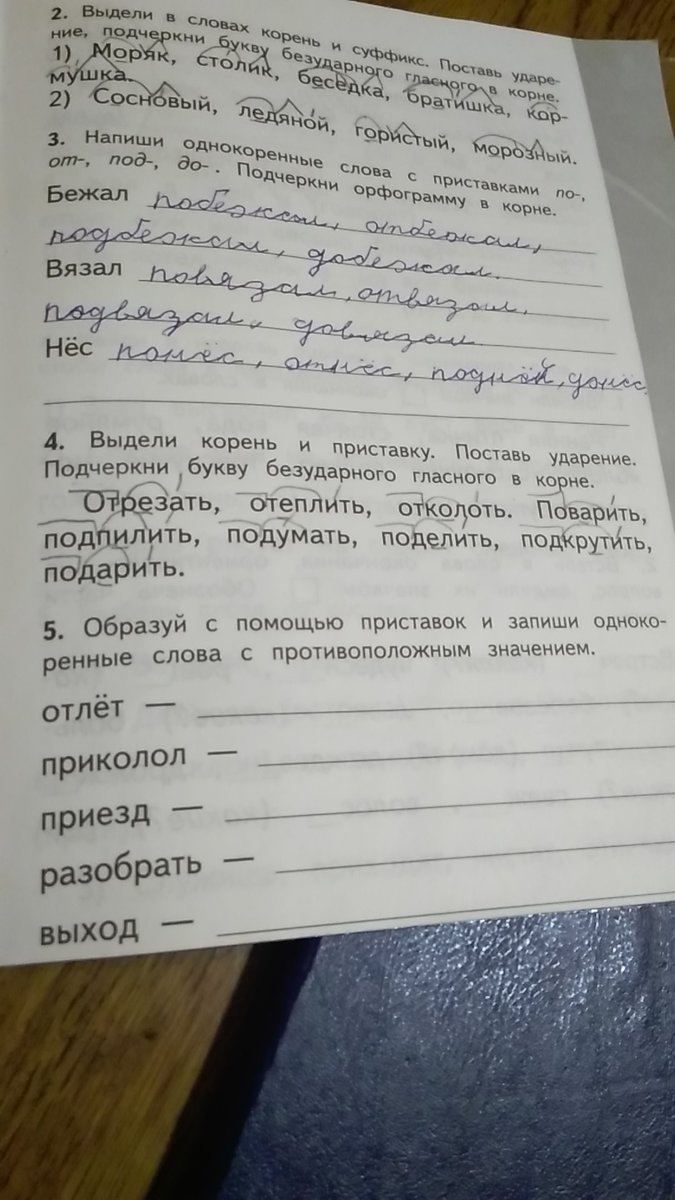 2. Выдели в словах корень и суффикс. Поставь ударе-
ние, подчеркни букву безударного гласного в корне.
1) Моряк, столик, беседка, братишка, кор-
мушка.
2) Сосновый, ледяной, гористый, морозный.
3. Напиши однокоренные слова с приставками по-,
от-, под-, до-. Подчеркни орфограмму в корне.
Бежал побежал, отбежал,
подбежал, добежал.
Вязал повязал, отвязал,
подвязал, довязал
Нёс понёс, отнёс, поднёс, донёс
4. Выдели корень и приставку. Поставь ударение.
Подчеркни букву безударного гласного в корне.
Отрезать, отеплить, отколоть. Поварить,
подпилить, подумать, поделить, подкрутить,
подарить.
5. Образуй с помощью приставок и запиши одноко-
ренные слова с противоположным значением.
отлёт —
приколол —
приезд —
разобрать —
выход —